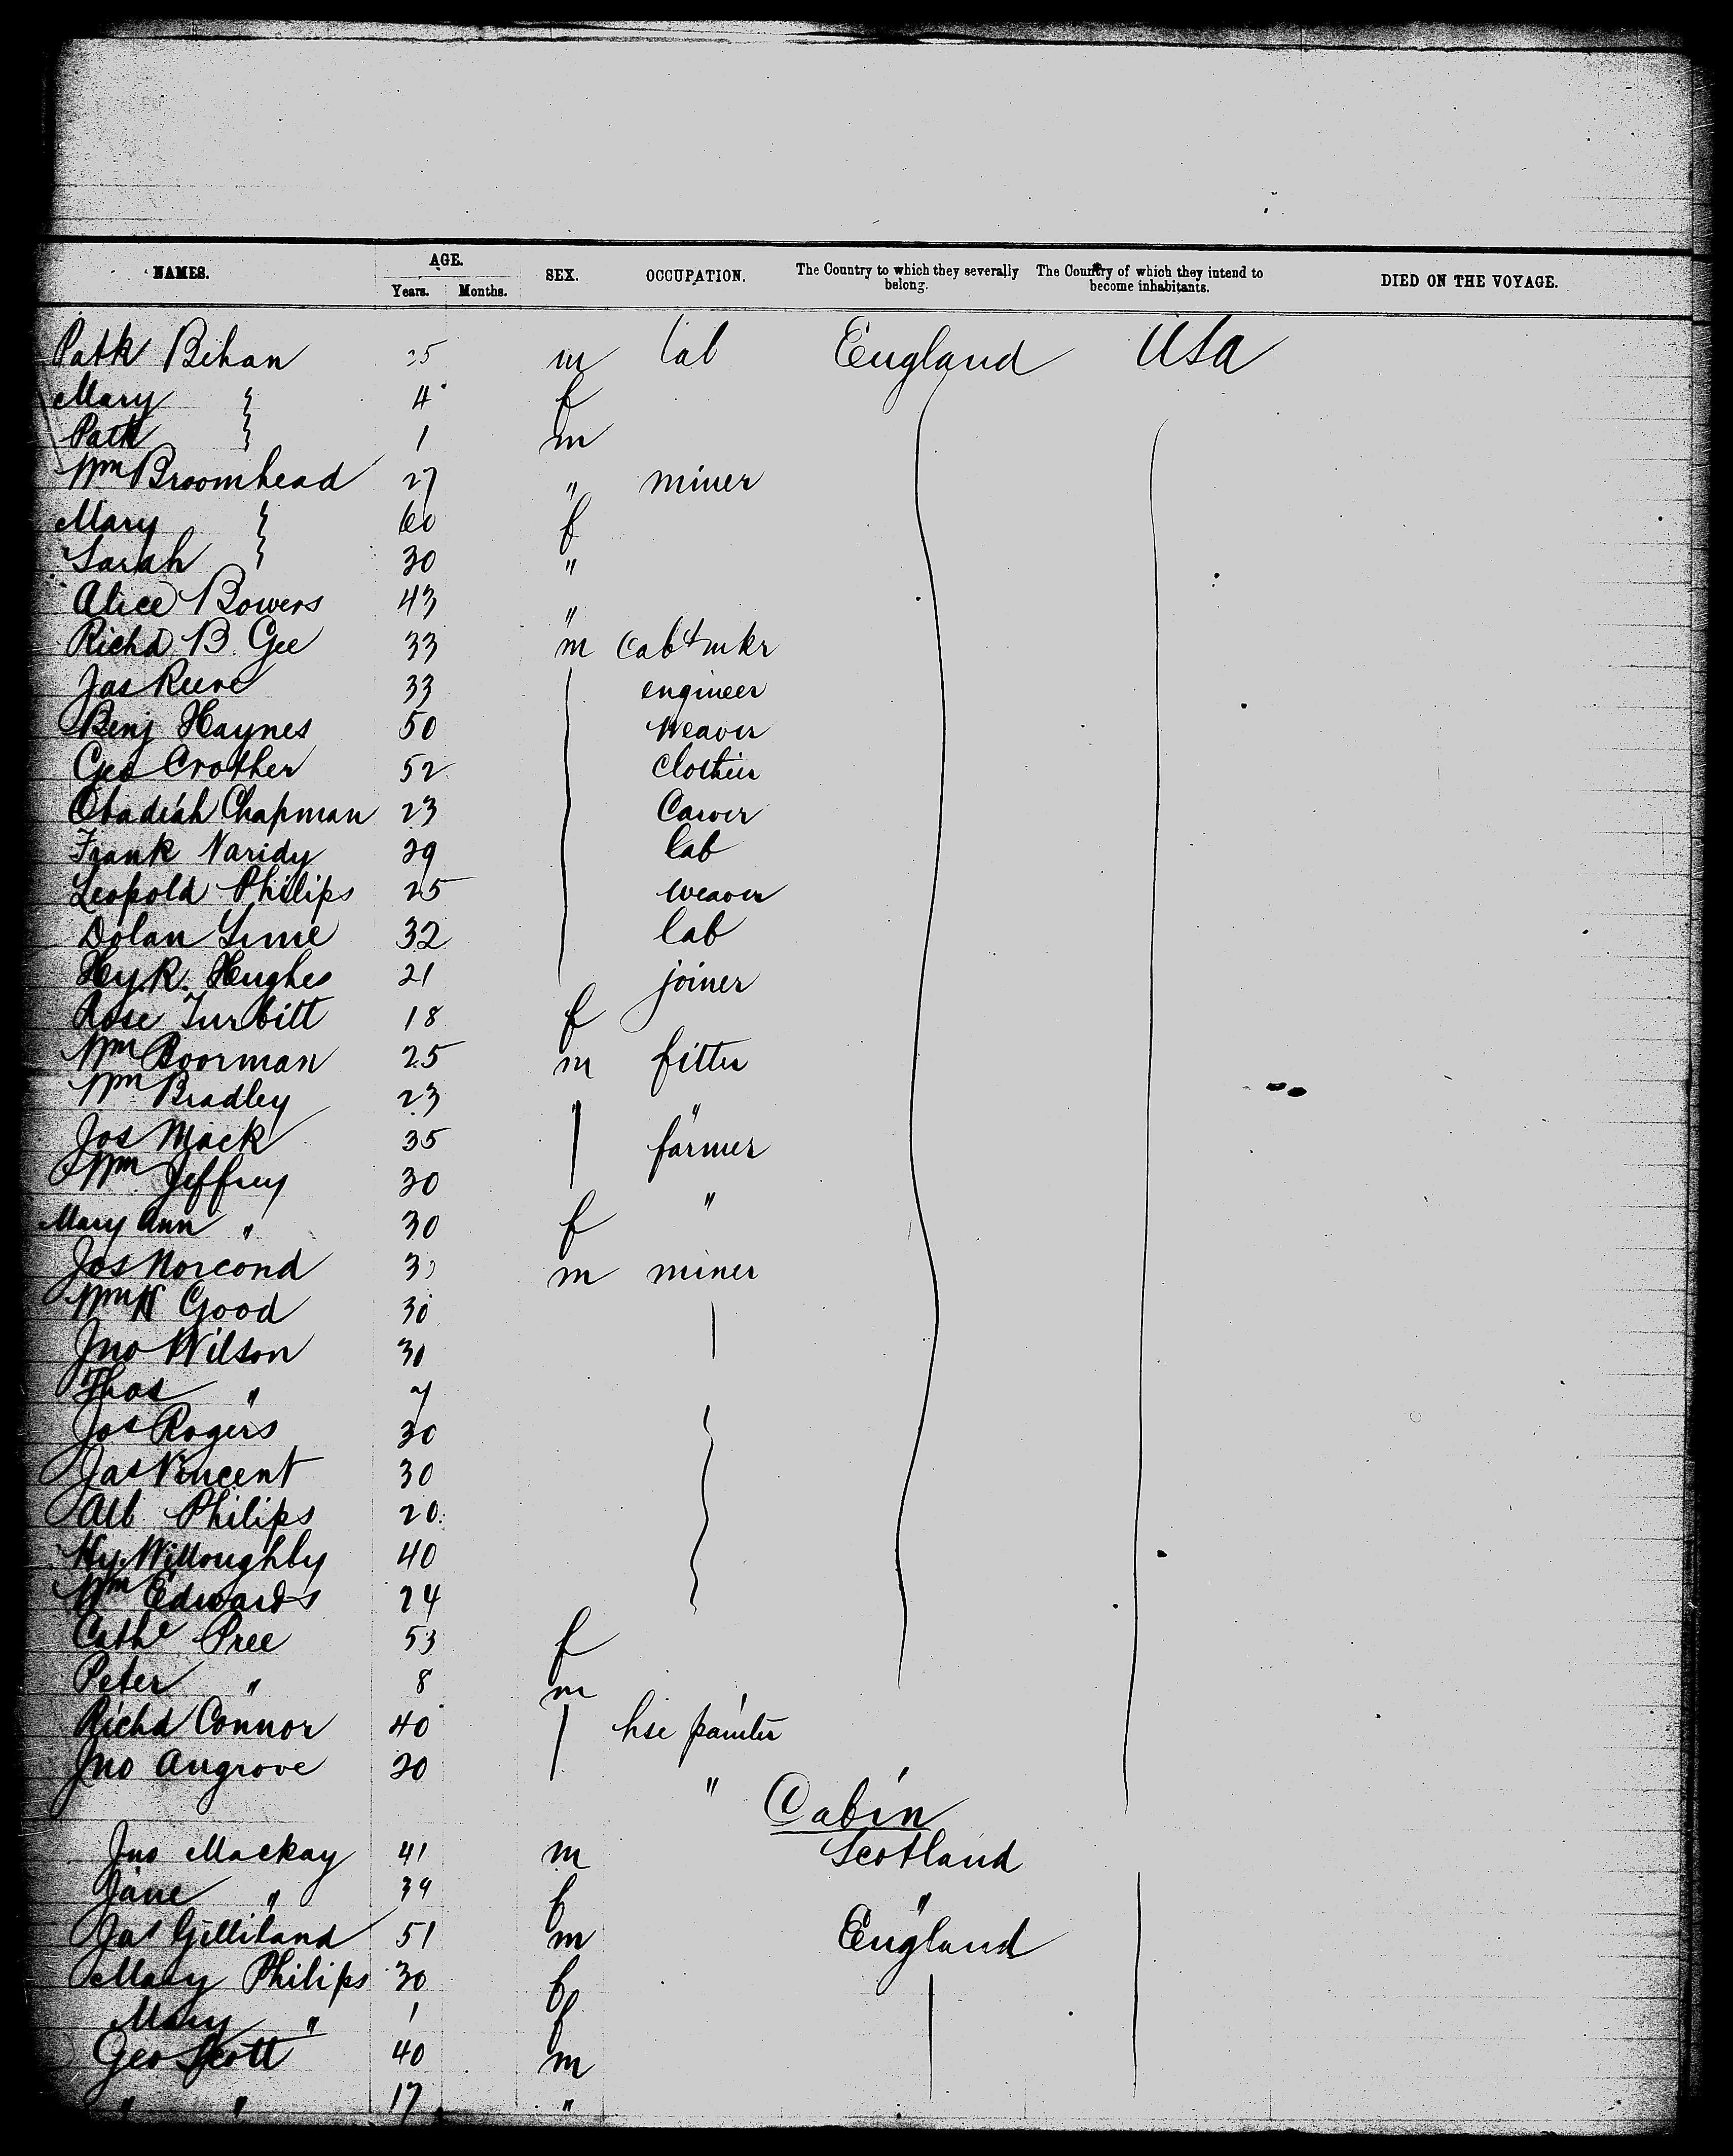 NAMES. AGE. Years. Months. SEX. OCCUPATION. The Country to which they severally belong. The Country of which they intend to become inhabitants. DIED ON THE VOYAGE.
Patk Bihan 25 m lab England USA
Mary 4 f
Patk 1 m
Wm Broomhead 27 " miner
Mary 60 f
Sarah 30 "
Alice Bowers 43 "
Richd B. Gee 33 m Cabt mkr
Jas Reeve 33 engineer
Benj Haynes 50 weaver
Geo Crother 52 clothier
Obadiah Chapman 23 Carver
Frank Naridy 29 lab
Leopold Philips 25 weaver
Dolan 32 lab
Hy R. Hughes 21 joiner
Rose Turbitt 18 f
Wm Boorman 25 m fitter
Wm Bradley 23 "
Jos Mack 35 farmer
Wm Jeffrey 30 "
Mary Ann " 30 f
Jos Norcond m miner
Wm H Good 30
Jno Wilson 30
Thos "
Jos Rogers 30
Jas Vincent 30
Alb Philips 20
Hy Willoughby 40
Wm Edwards 24
Cathe Pree 53 f
Peter " 8 m
Richd Connor 40 hse painter
Jno Angrove 20 "
Cabin
Jno Mackay 41 m Scotland
Jane " 39 f "
Jas Gilliland 51 m England
Mary Philips 30 f
Mary " 1 f
Geo Scott 40 m
" " 17 "